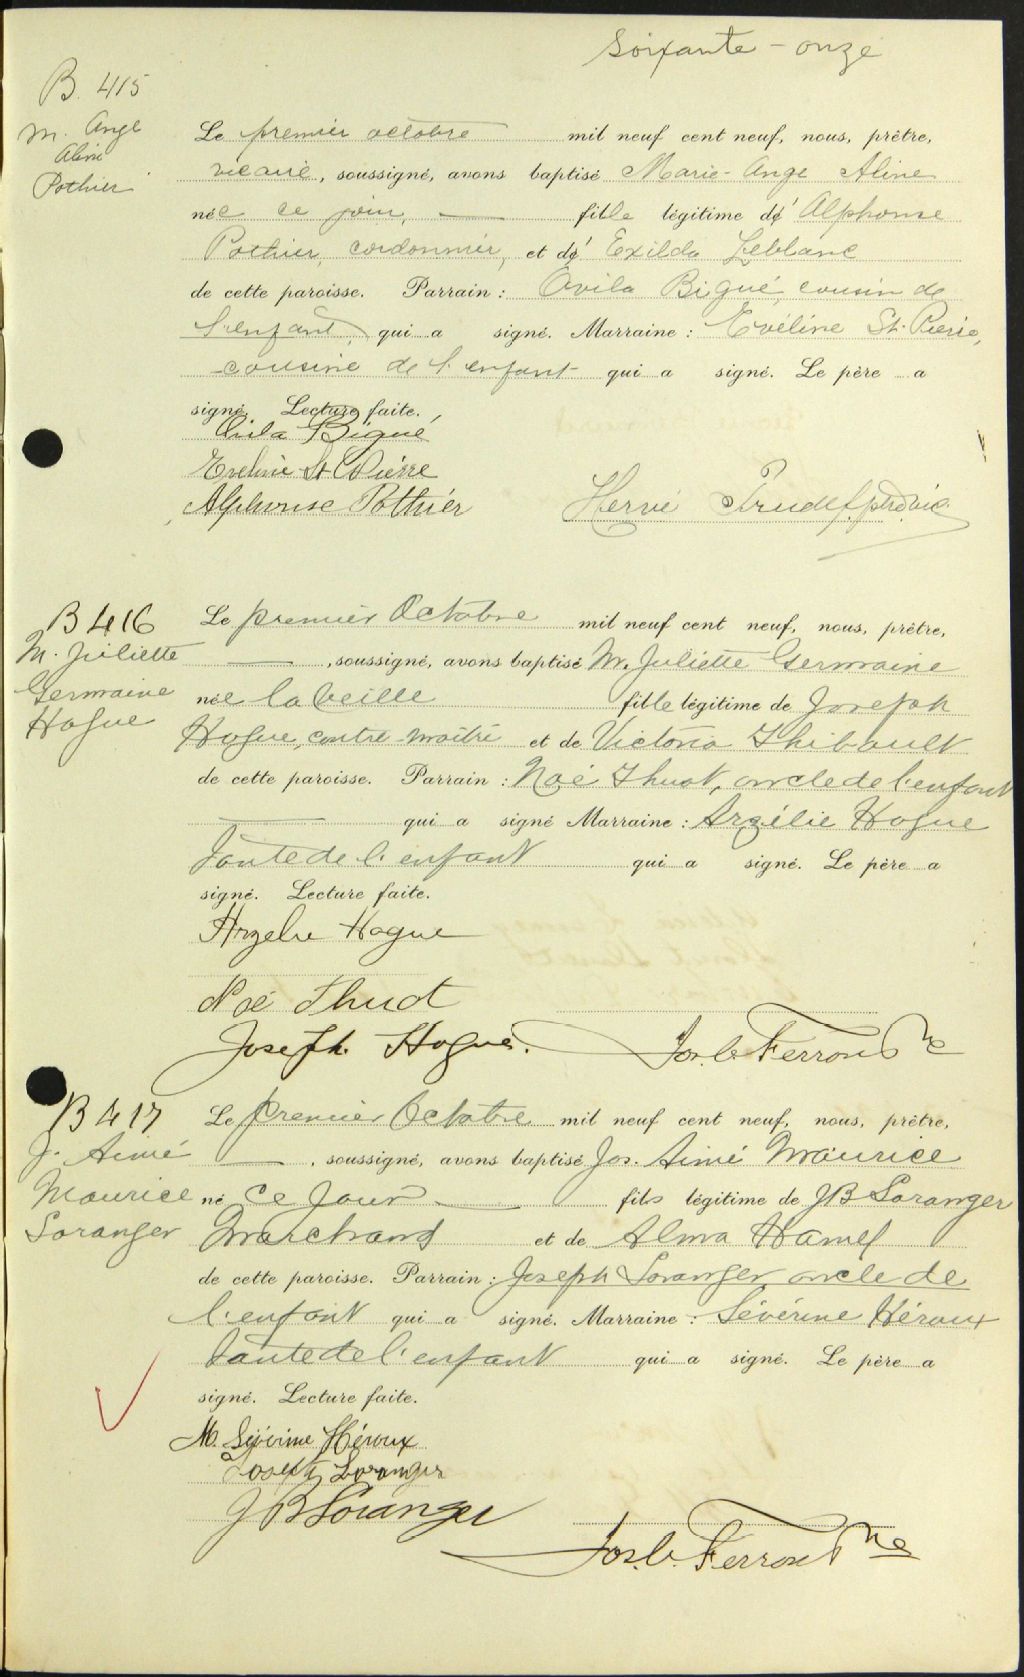 Soixante-onze
B. 415
M. Ange
Aline
Pothier
Le premier octobre mil neuf cent neuf, nous, prêtre,
vicaire, soussigné, avons baptisé Marie-Ange Aline
née ce jour, fille légitime d'Alphonse
Pothier, cordonnier, et d'Exilda Leblanc
de cette paroisse. Parrain : Ovila Bigué, cousin de
l'enfant, qui a signé. Marraine : Evéline St. Pierre,
cousine de l'enfant qui a signé. Le père a
signé. Lecture faite.
Ovila Bigué
Eveline St Pierre
Alphonse Pothier
Hervé Trudel, ptre vic.
B 416
M. Juliette
Germaine
Hogue
Le premier Octobre mil neuf cent neuf, nous, prêtre,
, soussigné, avons baptisé M. Juliette Germaine
née la veille fille légitime de Joseph
Hogue, contre-maître et de Victoria Thibault
de cette paroisse. Parrain : Noé Thuot, oncle de l'enfant
qui a signé Marraine : Arzélie Hogue
Tante de l'enfant qui a signé. Le père a
signé. Lecture faite.
Arzelie Hogue
Noé Thuot
Joseph Hogue.
Jos. C. Ferron Ptre
B 417
J. Aimé
Maurice
Loranger
Le premier Octobre mil neuf cent neuf, nous, prêtre,
, soussigné, avons baptisé Jos. Aimé Maurice
né ce jour fils légitime de JB Loranger
Marchand et de Alma Hamel
de cette paroisse. Parrain : Joseph Loranger oncle de
l'enfant qui a signé. Marraine : Sévérine Héroux
Tante de l'enfant qui a signé. Le père a
signé. Lecture faite.
M. Sévérine Héroux
Joseph Loranger
J B Loranger
Jos. C. Ferron Ptre